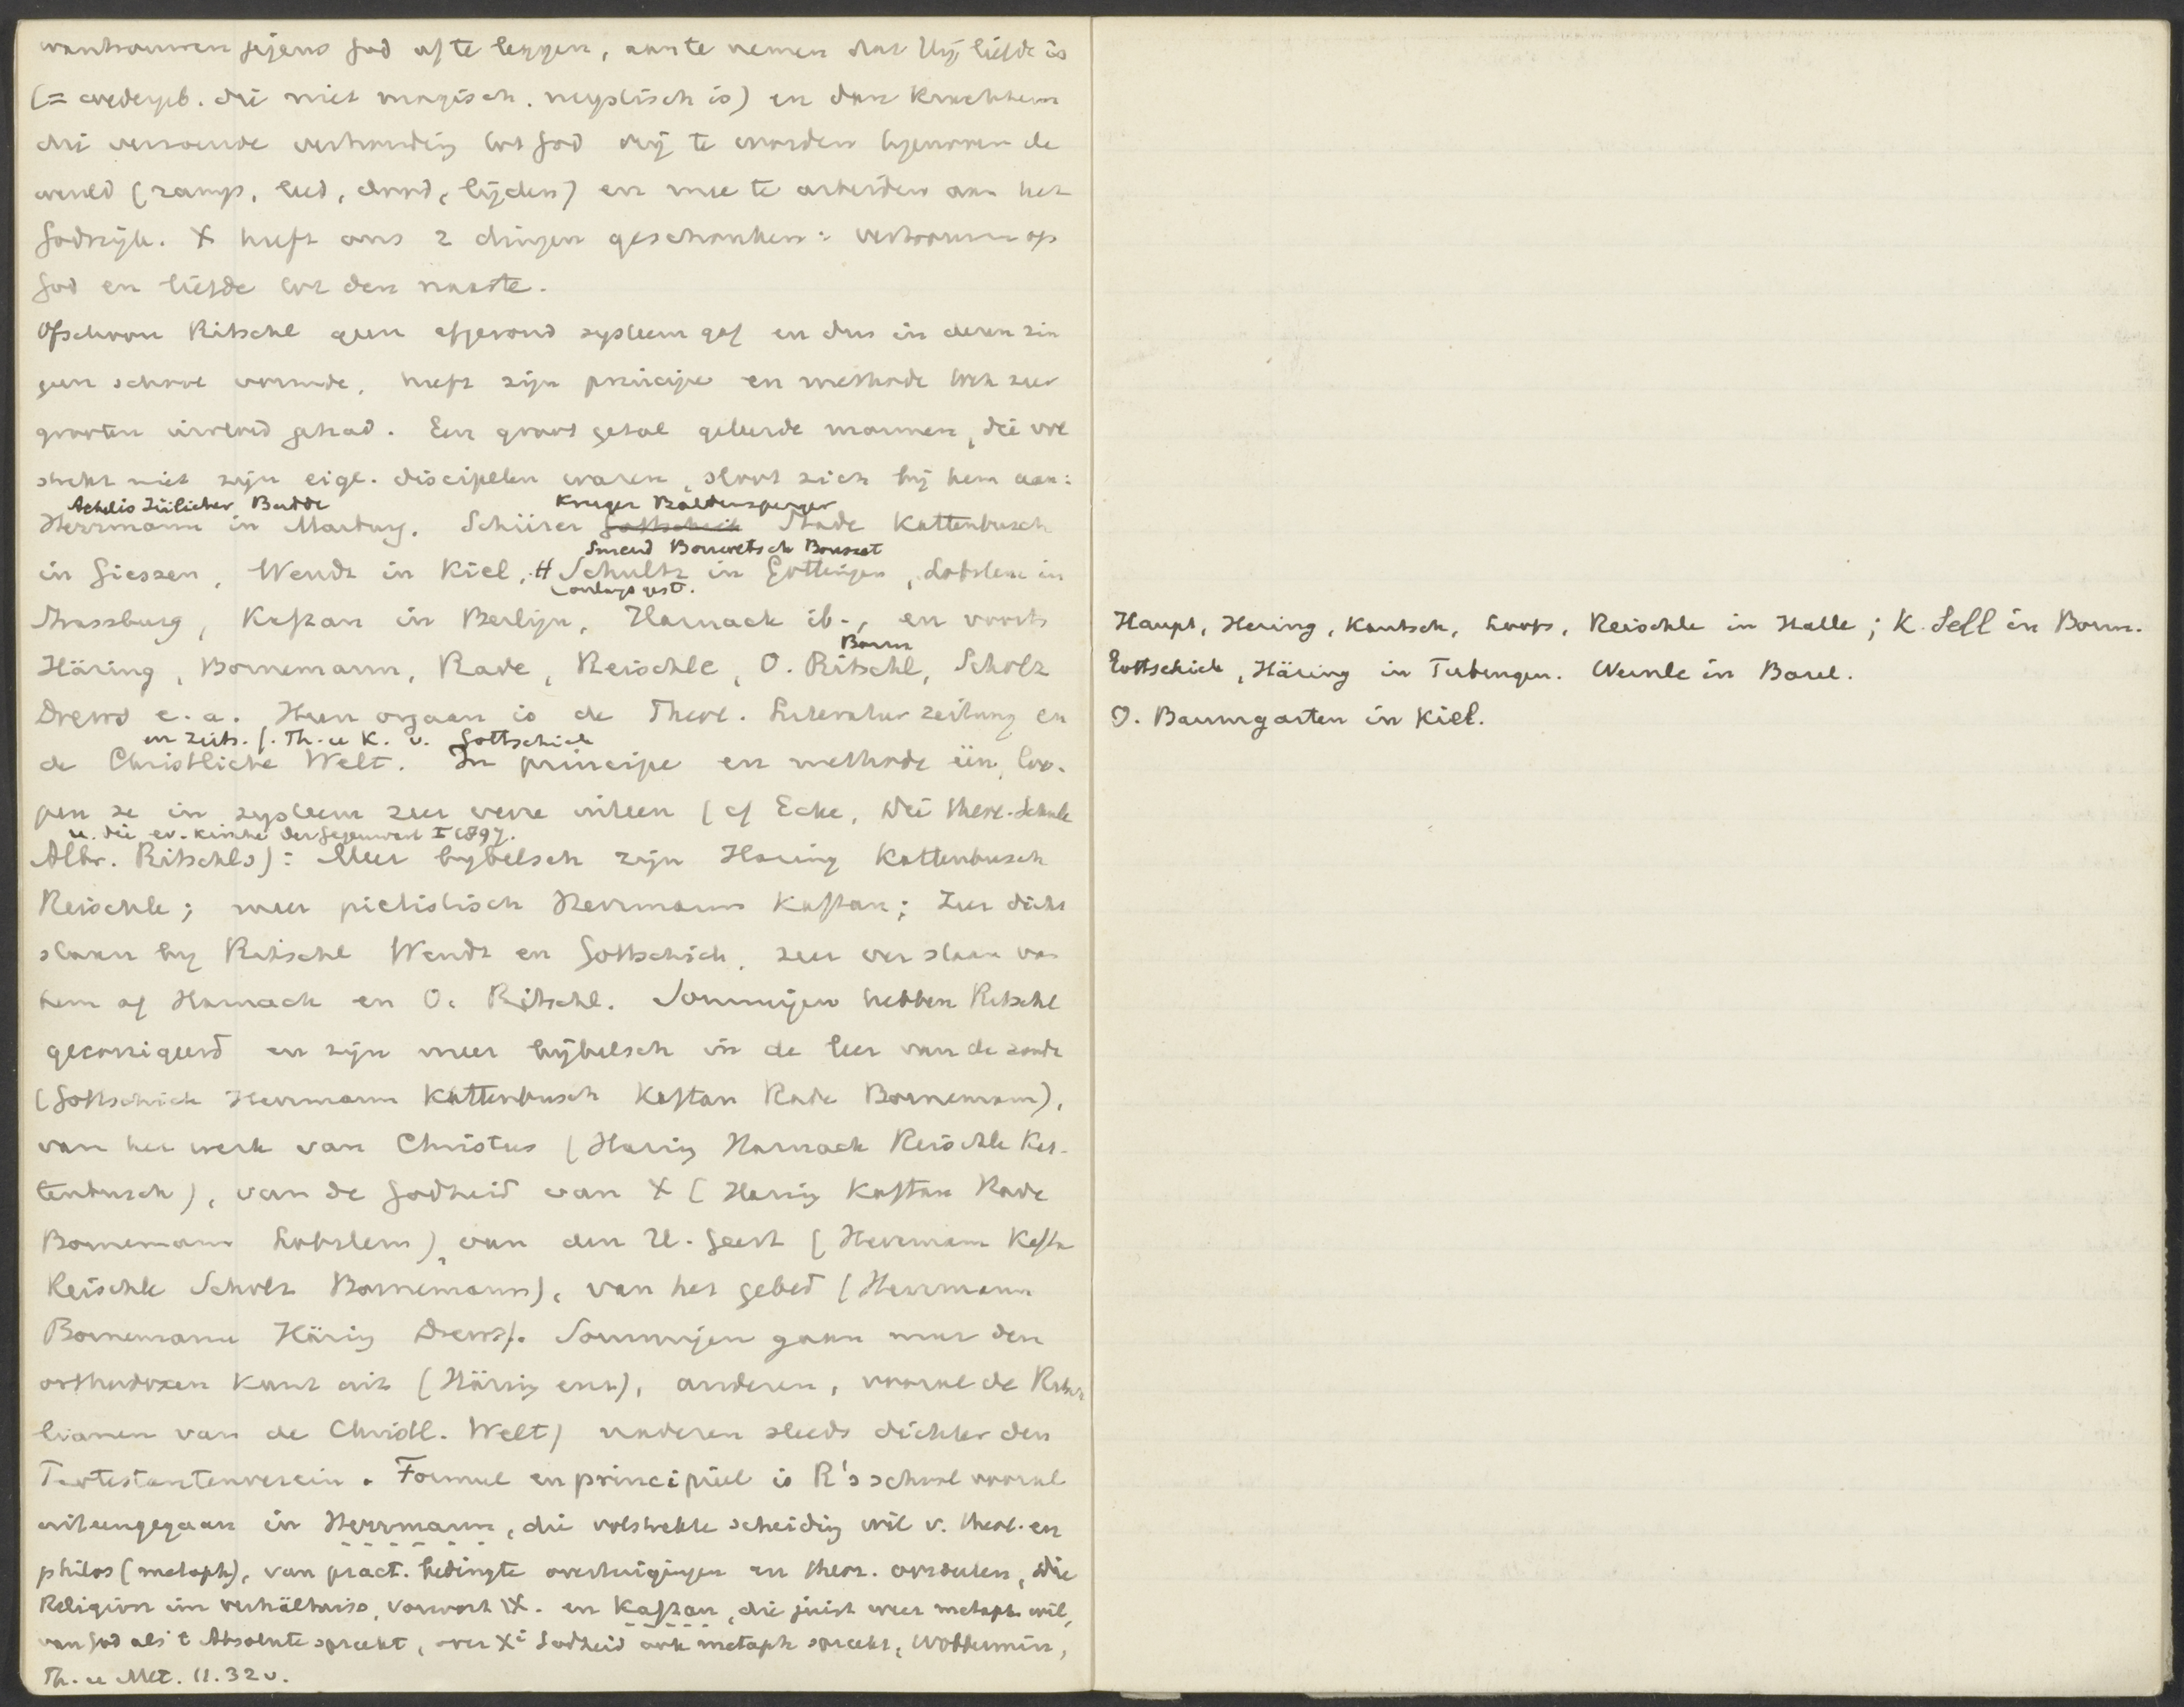 wantrouwen jegens God af te leggen, aan te nemen dat Hij liefde is
(= wedergeb. die niet magisch. mystisch is) en dan krachtens
die verzoende verhouding tot God vrij te worden tegenover de
wereld (ramp, leed, dood, lijden) en mee te arbeiden aan het
Godsrijk. X heeft ons 2 dingen geschonken: vertrouwen op
God en liefde tot den naaste.
Ofschoon Ritschl geen afgerond systeem gaf en dus in dezen zin
geen school vormde, heeft zijn principe en methode toch zeer
grooten invloed gehad. Een groot getal geleerde mannen, die vol
strekt niet zijn eigl. discipelen waren, sloot zich bij hem aan:
Achelis Jülicher Budde Krüger Baldensperger
Herrmann in Marburg. Schürer Gottschick Stade Kattenbusch
Smend Bonwetsch Bousset
in Giessen, Wendt in Kiel, H Schultz in Gottingen, Lobstein in
Strassburg, Kaftan in Berlijn, Harnack ib., en voorts
Bonn
Häring, Bornemann, Rade, Reischle, O. Ritschl, Scholz
Drews e.a. Hun orgaan is de Theol. Literatur Zeitung en
en Zeits. f. Th. u K. v. Gottschick
de Christliche Welt. In principe en methode één, loo-
pen ze in systeem zeer verre uiteen (cf Ecke, Die theol. Schule
u. die ev. Kirche der Gegenwart I 1897.
Albr. Ritschls): Meer bybelsch zijn Haring Kattenbusch
Reischle; meer pietistisch Herrmann Kaftan; Zeer dicht
staan by Ritschl Wendt en Gottschick, zeer ver staan van
hem af Harnack en O. Ritschl. Sommigen hebben Ritschl
gecorrigeerd en zijn meer bijbelsch in de leer van de zonde
(Gottschick Herrmann Kattenbusch Kaftan Rade Bornemann),
van het werk van Christus (Haring Harnack Reischle Kat-
tenbusch), van de Godheid van X (Haring Kaftan Rade
Bornemann Lobstein), van den H. Geest (Herrmann Kaftan
Reischle Scholz Bornemann), van het gebed (Herrmann
Bornemann Häring Drews). Sommigen gaan naar den
orthodoxen kant uit (Häring enz), anderen, vooral de Ritsch
lianen van de Christl. Welt) naderen steeds dichter den
Protestantenverein. Formeel en principieel is R's school vooral
uiteengegaan in Herrmann, die volstrekte scheiding wil v. theol. en
philos (metaph), van pract. bedingte overtuigingen en theor. oordeelen, Die
Religion im verhältniss, Vorwort IX. en Kaftan, die juist weer metaph. wil,
van God als 't Absolute spreekt, over Xi Godheid ook metaph spreekt, Wobbermin,
Th. u Met. 11.32v.
Haupt, Hering, Kautsch, Loofs, Reischle in Halle; K. Sell in Bonn.
Gottschick, Häring in Tubingen. Wernle in Basel.
O. Baumgarten in Kiel.